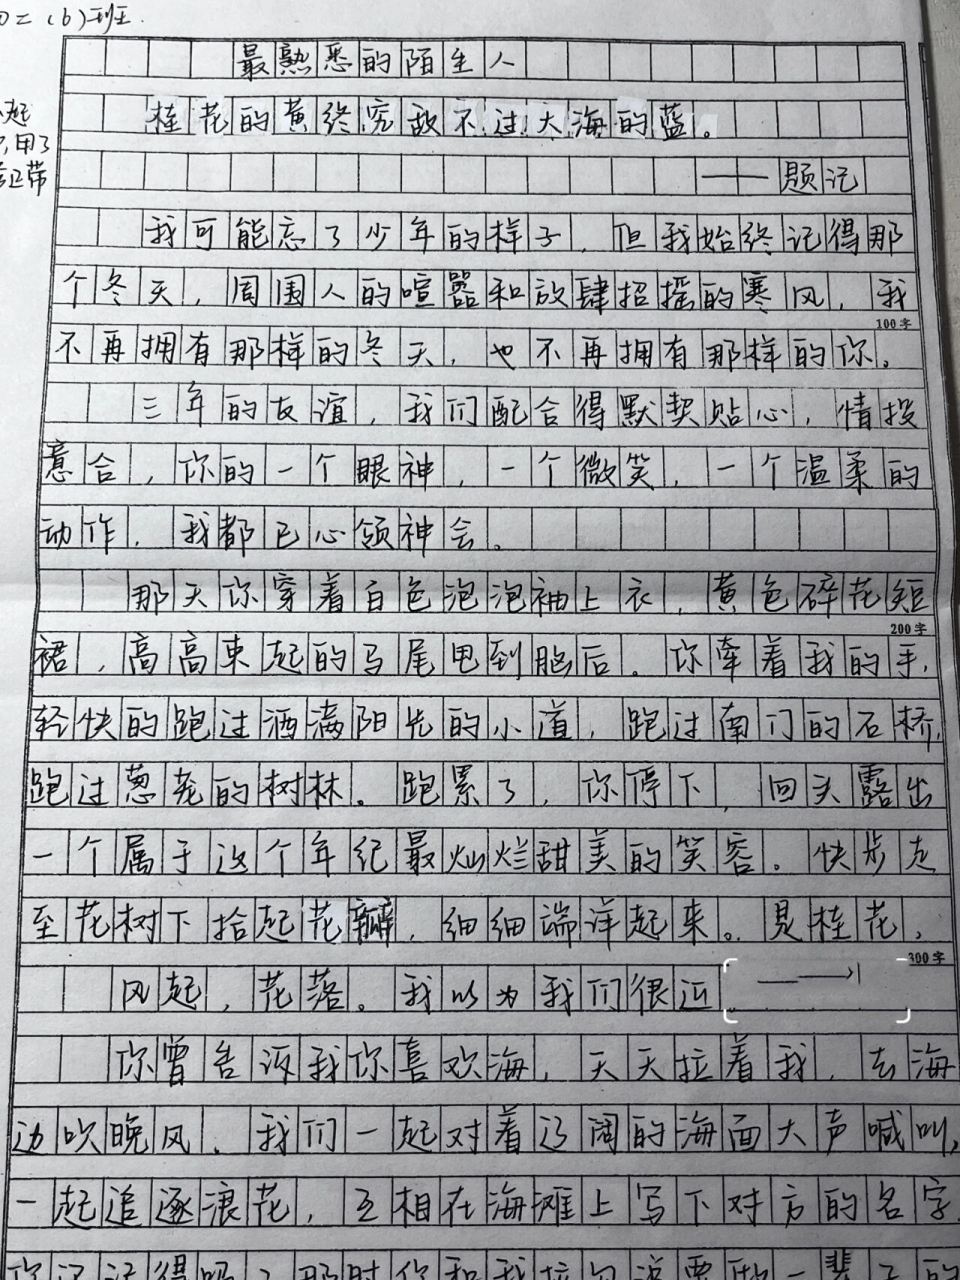 初二（6）班
最熟悉的陌生人
桂花的黄终究敌不过大海的蓝。
——题记
我可能忘了少年的样子，但我始终记得那
个冬天，周围人的喧嚣和放肆招摇的寒风，我
100字
不再拥有那样的冬天，也不再拥有那样的你。
三年的友谊，我们配合得默契贴心，情投
意合，你的一个眼神，一个微笑，一个温柔的
动作，我都已心领神会。
那天你穿着白色泡泡袖上衣，黄色碎花短
200字
裙，高高束起的马尾甩到脑后。你牵着我的手，
轻快的跑过洒满阳光的小道，跑过南门的石桥，
跑过葱茏的树林。跑累了，你停下，回头露出
一个属于这个年纪最灿烂甜美的笑容。快步走
至花树下拾起花瓣，细细端详起来。是桂花，
300字
风起，花落。我以为我们很近。
你曾告诉我你喜欢海，天天拉着我，去海
边吹晚风，我们一起对着辽阔的海面大声喊叫，
一起追逐浪花，互相在海滩上写下对方的名字
你还记得吗？那时你和我拉勾说要做一辈子的
起
，用了
正带